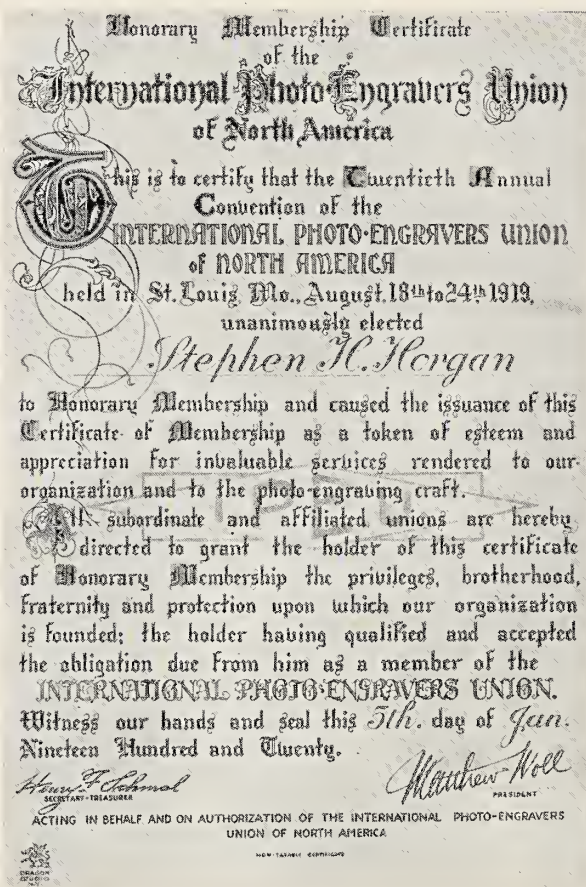 Honorary Membership Certificate
of the
International Photo-Engravers Union
of North America
This is to certify that the Twentieth Annual
Convention of the
INTERNATIONAL PHOTO-ENGRAVERS UNION
of NORTH AMERICA
held in St. Louis, Mo., August, 18th to 24th 1919,
unanimously elected
Stephen H. Horgan
to Honorary Membership and caused the issuance of this
Certificate of Membership as a token of esteem and
appreciation for invaluable services rendered to our
organization and to the photo-engraving craft.
All subordinate and affiliated unions are hereby
directed to grant the holder of this certificate
of Honorary Membership the privileges, brotherhood,
fraternity and protection upon which our organization
is founded; the holder having qualified and accepted
the obligation due from him as a member of the
INTERNATIONAL PHOTO-ENGRAVERS UNION.
Witness our hands and seal this 5th. day of Jan.
Nineteen Hundred and Twenty.
Henry F. Schmal
SECRETARY-TREASURER
Matthew Woll
PRESIDENT
ACTING IN BEHALF AND ON AUTHORIZATION OF THE INTERNATIONAL PHOTO-ENGRAVERS
UNION OF NORTH AMERICA
NON-TAXABLE CERTIFICATE
DRAGON
STUDIO